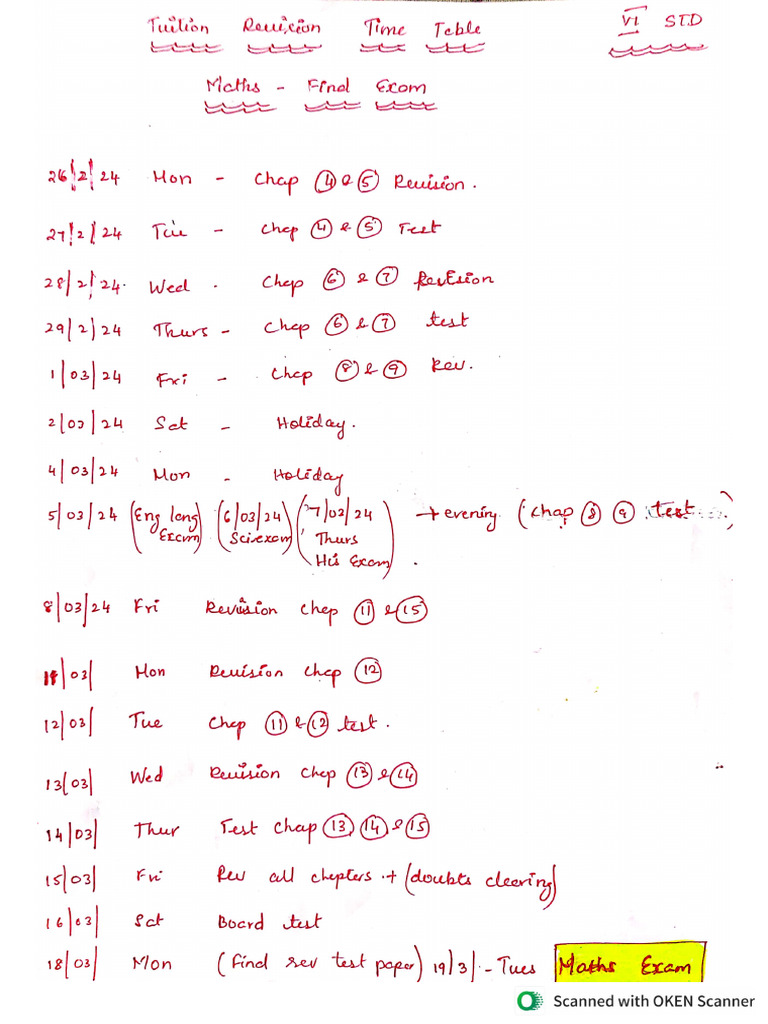 Tuition Revision Time Table VI STD
Maths - Final Exam
26/2/24 Mon - Chap 4 & 5 Revision.
27/2/24 Tue - Chap 4 & 5 Test
28/2/24. Wed . Chap 6 & 7 Revision
29/2/24 Thurs - Chap 6 & 7 test
1/03/24 Fri - Chap 8 & 9 Rev.
2/03/24 Sat - Holiday.
4/03/24 Mon - Holiday
5/03/24 (Eng lang Exam) (6/03/24 Sci exam) (7/03/24 Thurs His Exam) → evening (Chap 8 9 test)
8/03/24 Fri Revision Chap 11 & 15
11/03/ Mon Revision Chap 12
12/03/ Tue Chap 11 & 12 test.
13/03/ Wed Revision Chap 13 & 14
14/03/ Thur Test Chap 13, 14 & 15
15/03/ Fri Rev all chapters + (doubts clearing)
16/03/ Sat Board test
18/03/ Mon (Final rev test paper) 19/3/ - Tues Maths Exam
Scanned with OKEN Scanner